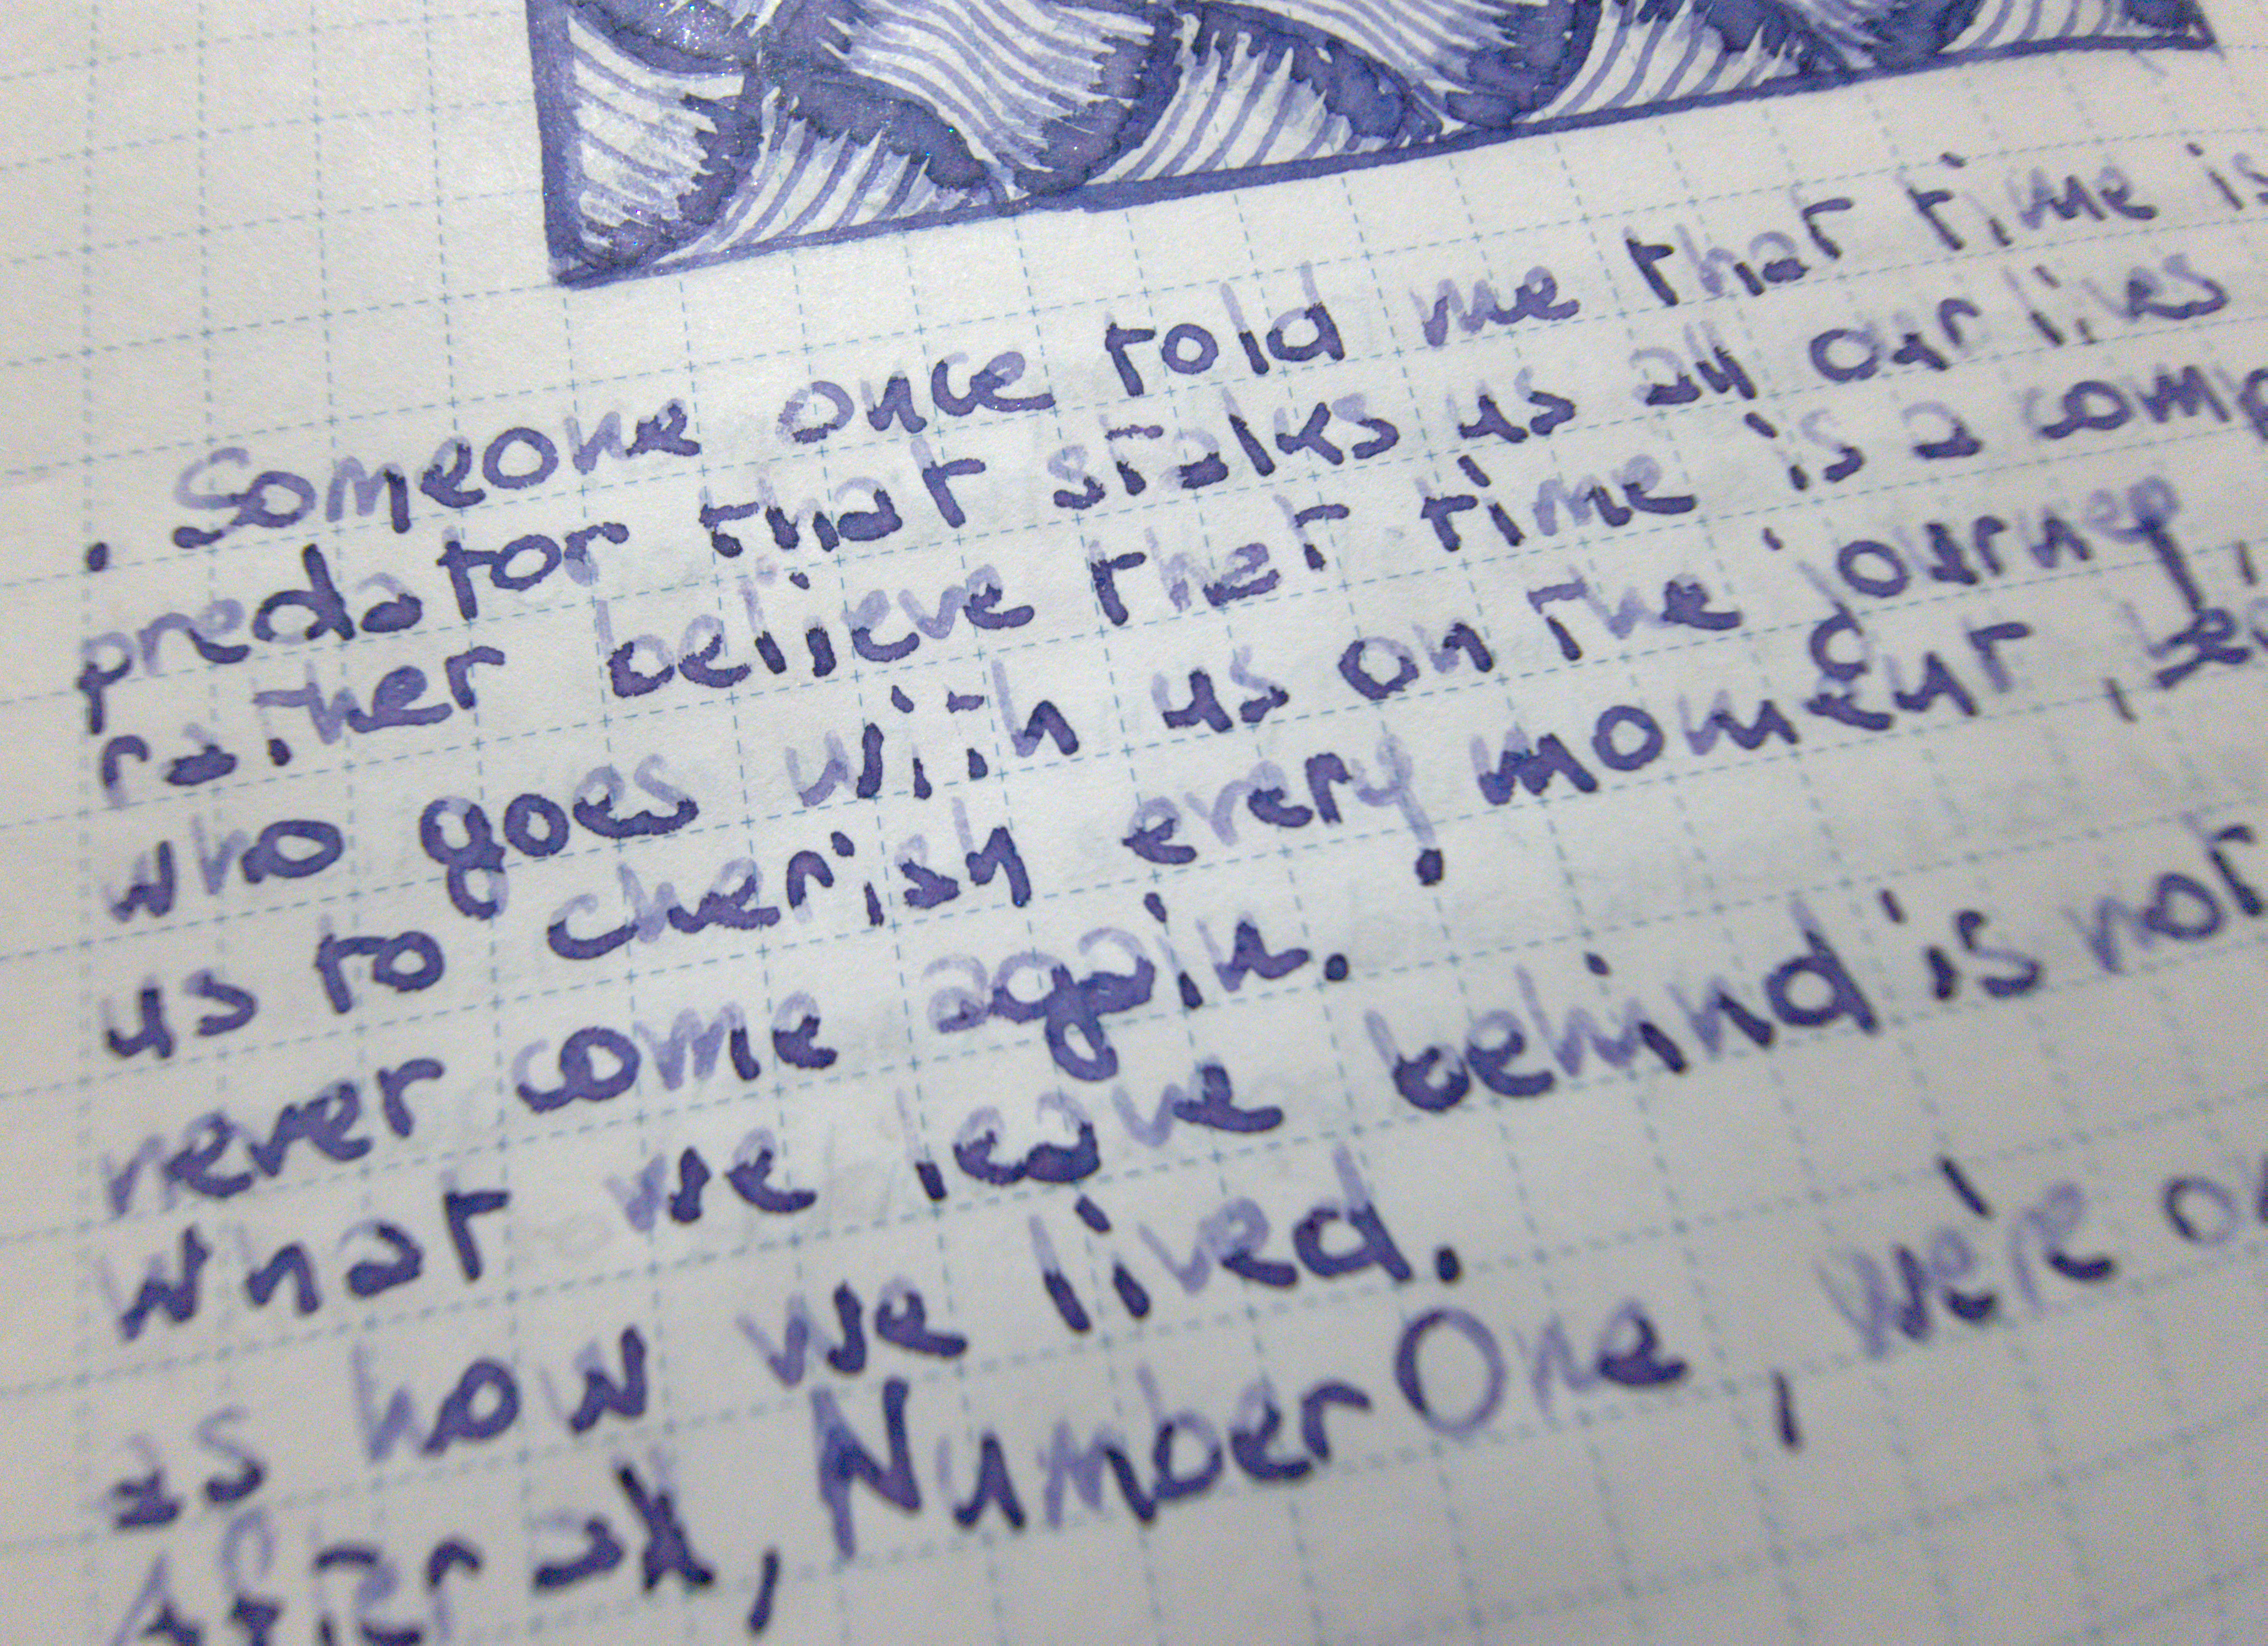 . Someone once told me that time is
predator that stalks us all our lives
rather believe that time is a comp
who goes with us on the journey,
us to cherish every moment,
never come again.
What we leave behind is not
as how we lived.
After all, Number One, we're